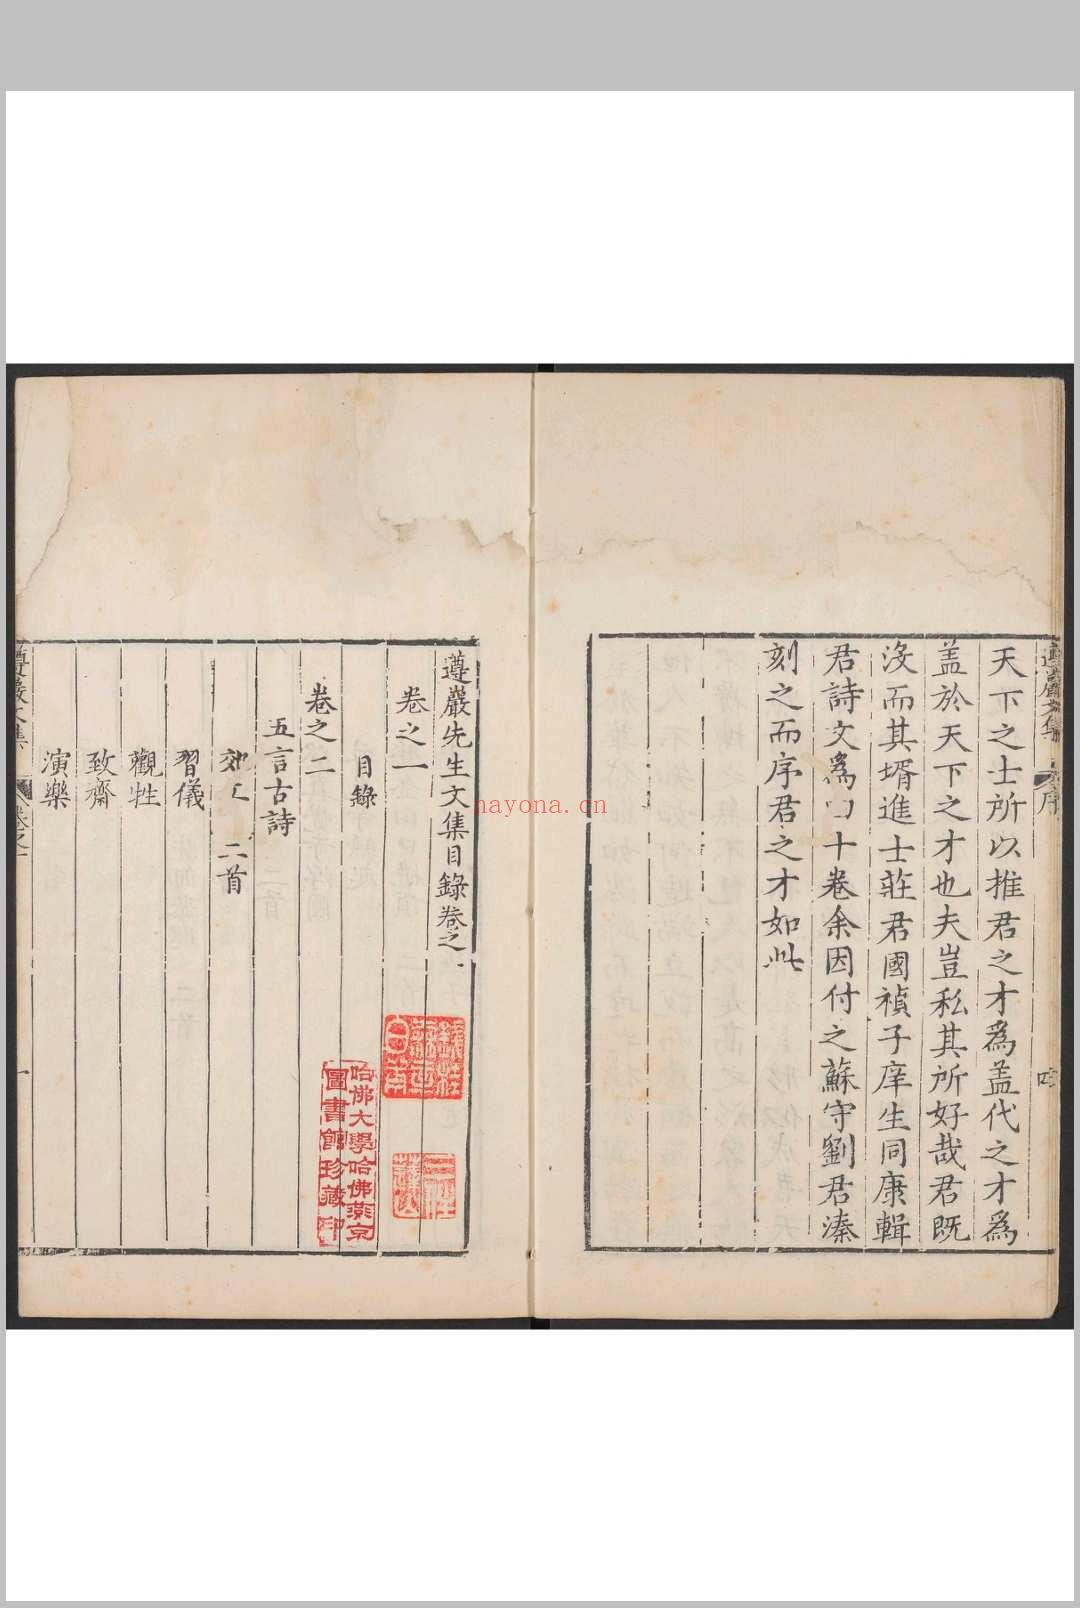 天下之士所以推君之才爲盖代之才爲
盖於天下之才也夫豈私其所好哉君既
没而其壻進士莊君國禎子庠生同康輯
君詩文爲十卷余因付之蘇守劉君溱
刻之而序君之才如此
序
四
遵巖先生文集目錄卷之一
卷之一
目錄
卷之二
五言古詩
二首
習儀
觀牲
致齋
演樂
哈佛大學哈佛燕京
圖書館珍藏印
nayona.cn